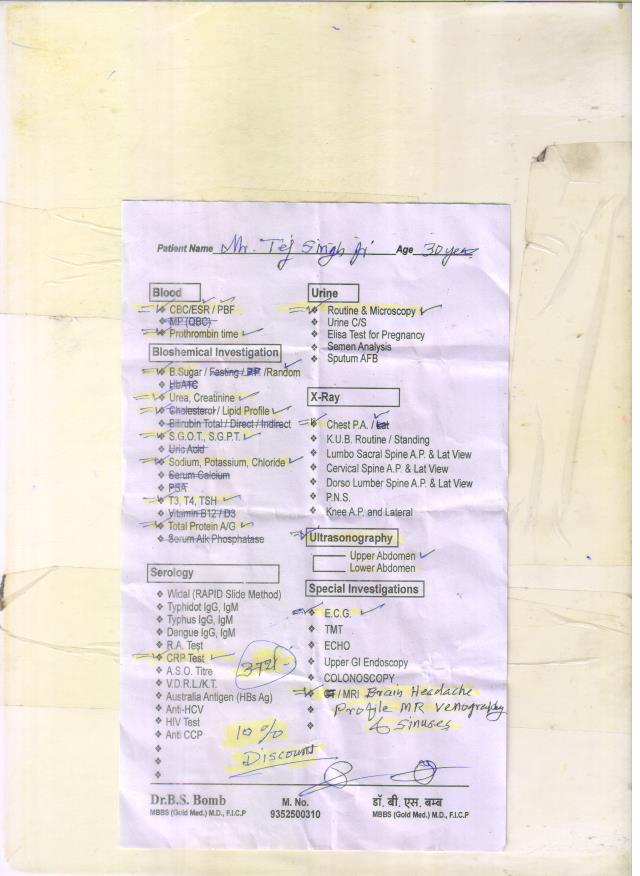 Patient Name Mr. Tej Singh Ji Age 30 years
Blood
CBC/ESR / PBF
MP (QBC)
Prothrombin time
Bioshemical Investigation
B.Sugar / Fasting / P.P. /Random
HbA1C
Urea, Creatinine
Cholesterol / Lipid Profile
Bilirubin Total / Direct / Indirect
S.G.O.T., S.G.P.T.
Uric Acid
Sodium, Potassium, Chloride
Serum Calcium
PSA
T3, T4, TSH
Vitamin B12 / D3
Total Protein A/G
Serum Alk Phosphatase
Serology
Widal (RAPID Slide Method)
Typhidot IgG, IgM
Typhus IgG, IgM
Dengue IgG, IgM
R.A. Test
CRP Test
A.S.O. Titre
V.D.R.L/K.T.
Australia Antigen (HBs Ag)
Anti-HCV
HIV Test
Anti CCP
10%
Discount
Urine
Routine & Microscopy
Urine C/S
Elisa Test for Pregnancy
Semen Analysis
Sputum AFB
X-Ray
Chest P.A. / Lat
K.U.B. Routine / Standing
Lumbo Sacral Spine A.P. & Lat View
Cervical Spine A.P. & Lat View
Dorso Lumber Spine A.P. & Lat View
P.N.S.
Knee A.P. and Lateral
Ultrasonography
Upper Abdomen
Lower Abdomen
Special Investigations
E.C.G.
TMT
ECHO
Upper GI Endoscopy
COLONOSCOPY
CT / MRI Brain Headache
Profile MR Venography
& Sinuses
Dr.B.S. Bomb M. No. डॉ. बी. एस. बम्ब
MBBS (Gold Med.) M.D., F.I.C.P 9352500310 MBBS (Gold Med.) M.D., F.I.C.P